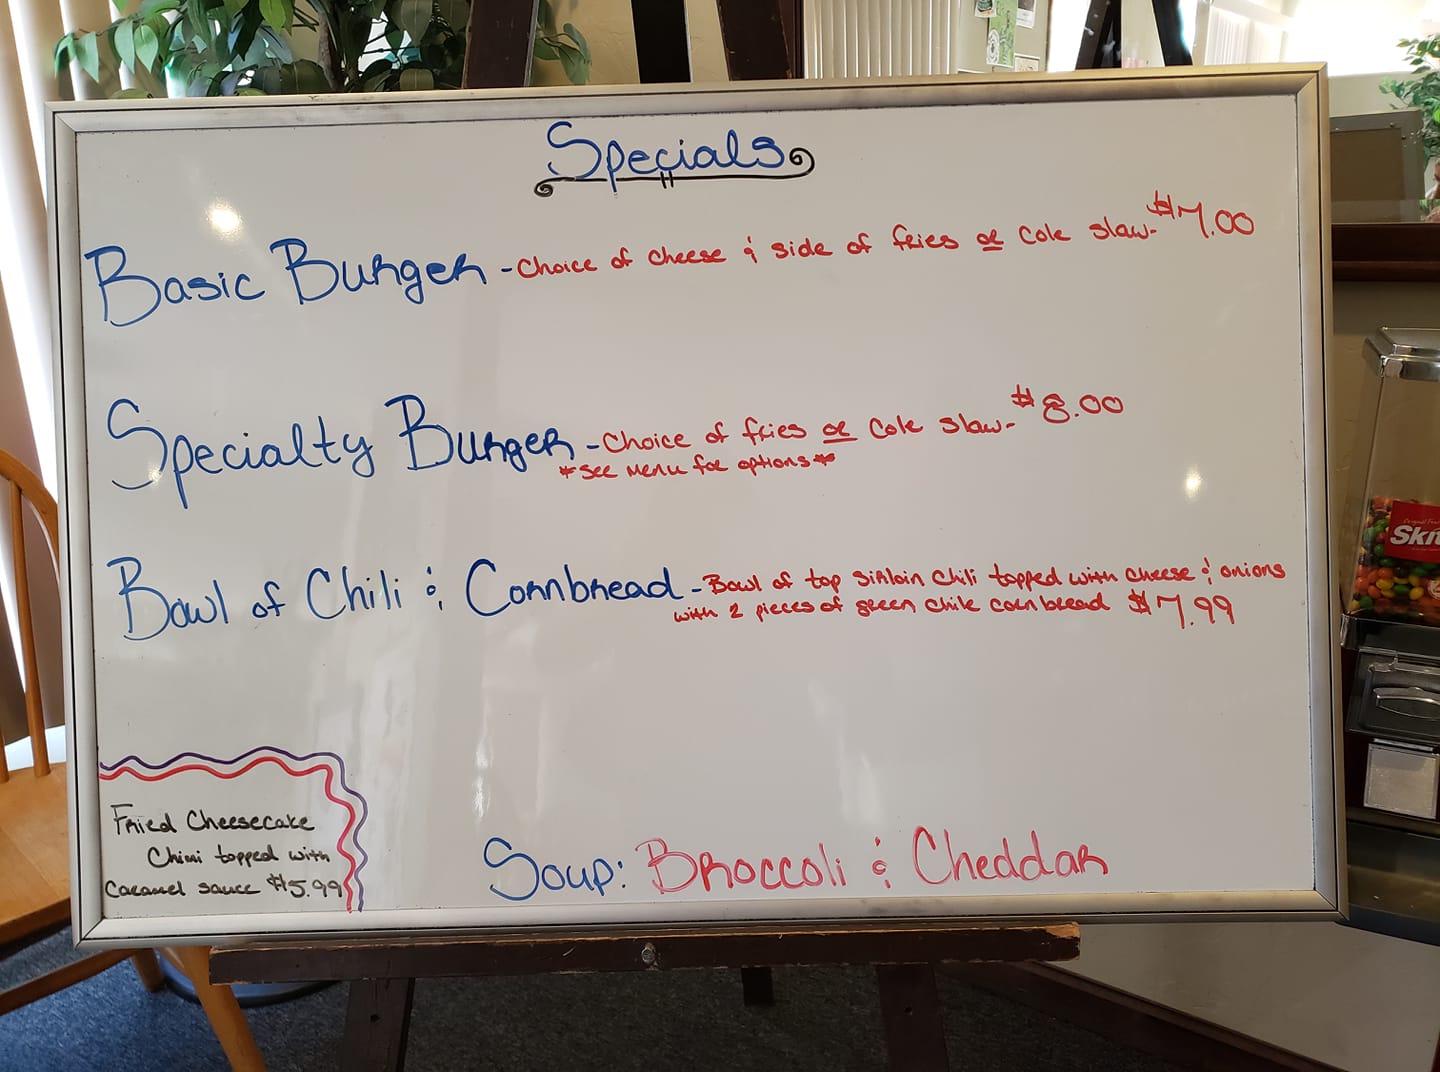 Specials
Basic Burger - Choice of cheese & side of fries or cole slaw - $7.00
Specialty Burger - Choice of fries or cole slaw - $8.00
*See menu for options*
Bowl of Chili & Cornbread - Bowl of top sirloin chili topped with cheese & onions
with 2 pieces of green chile cornbread $7.99
Fried Cheesecake
Chimi topped with
Caramel sauce $5.99
Soup: Broccoli & Cheddar